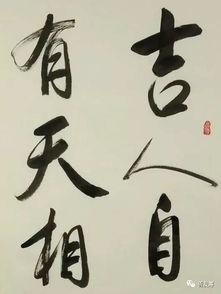 吉人自
有天相